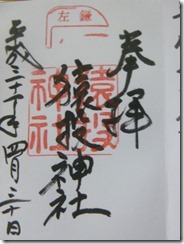 奉拝
左鎌
猿投神社
猿投神社
平成三十年四月三十日